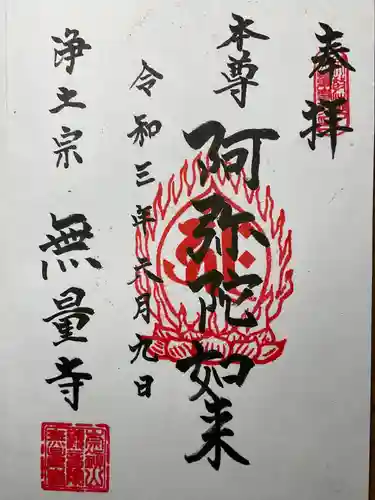 奉拝
本尊
阿弥陀如来
令和三年六月九日
浄土宗
無量寺